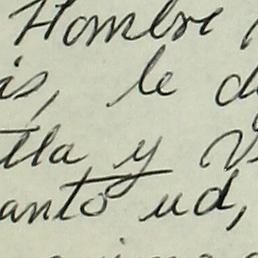 Hombre
is, le d
lla y V
anto ud,